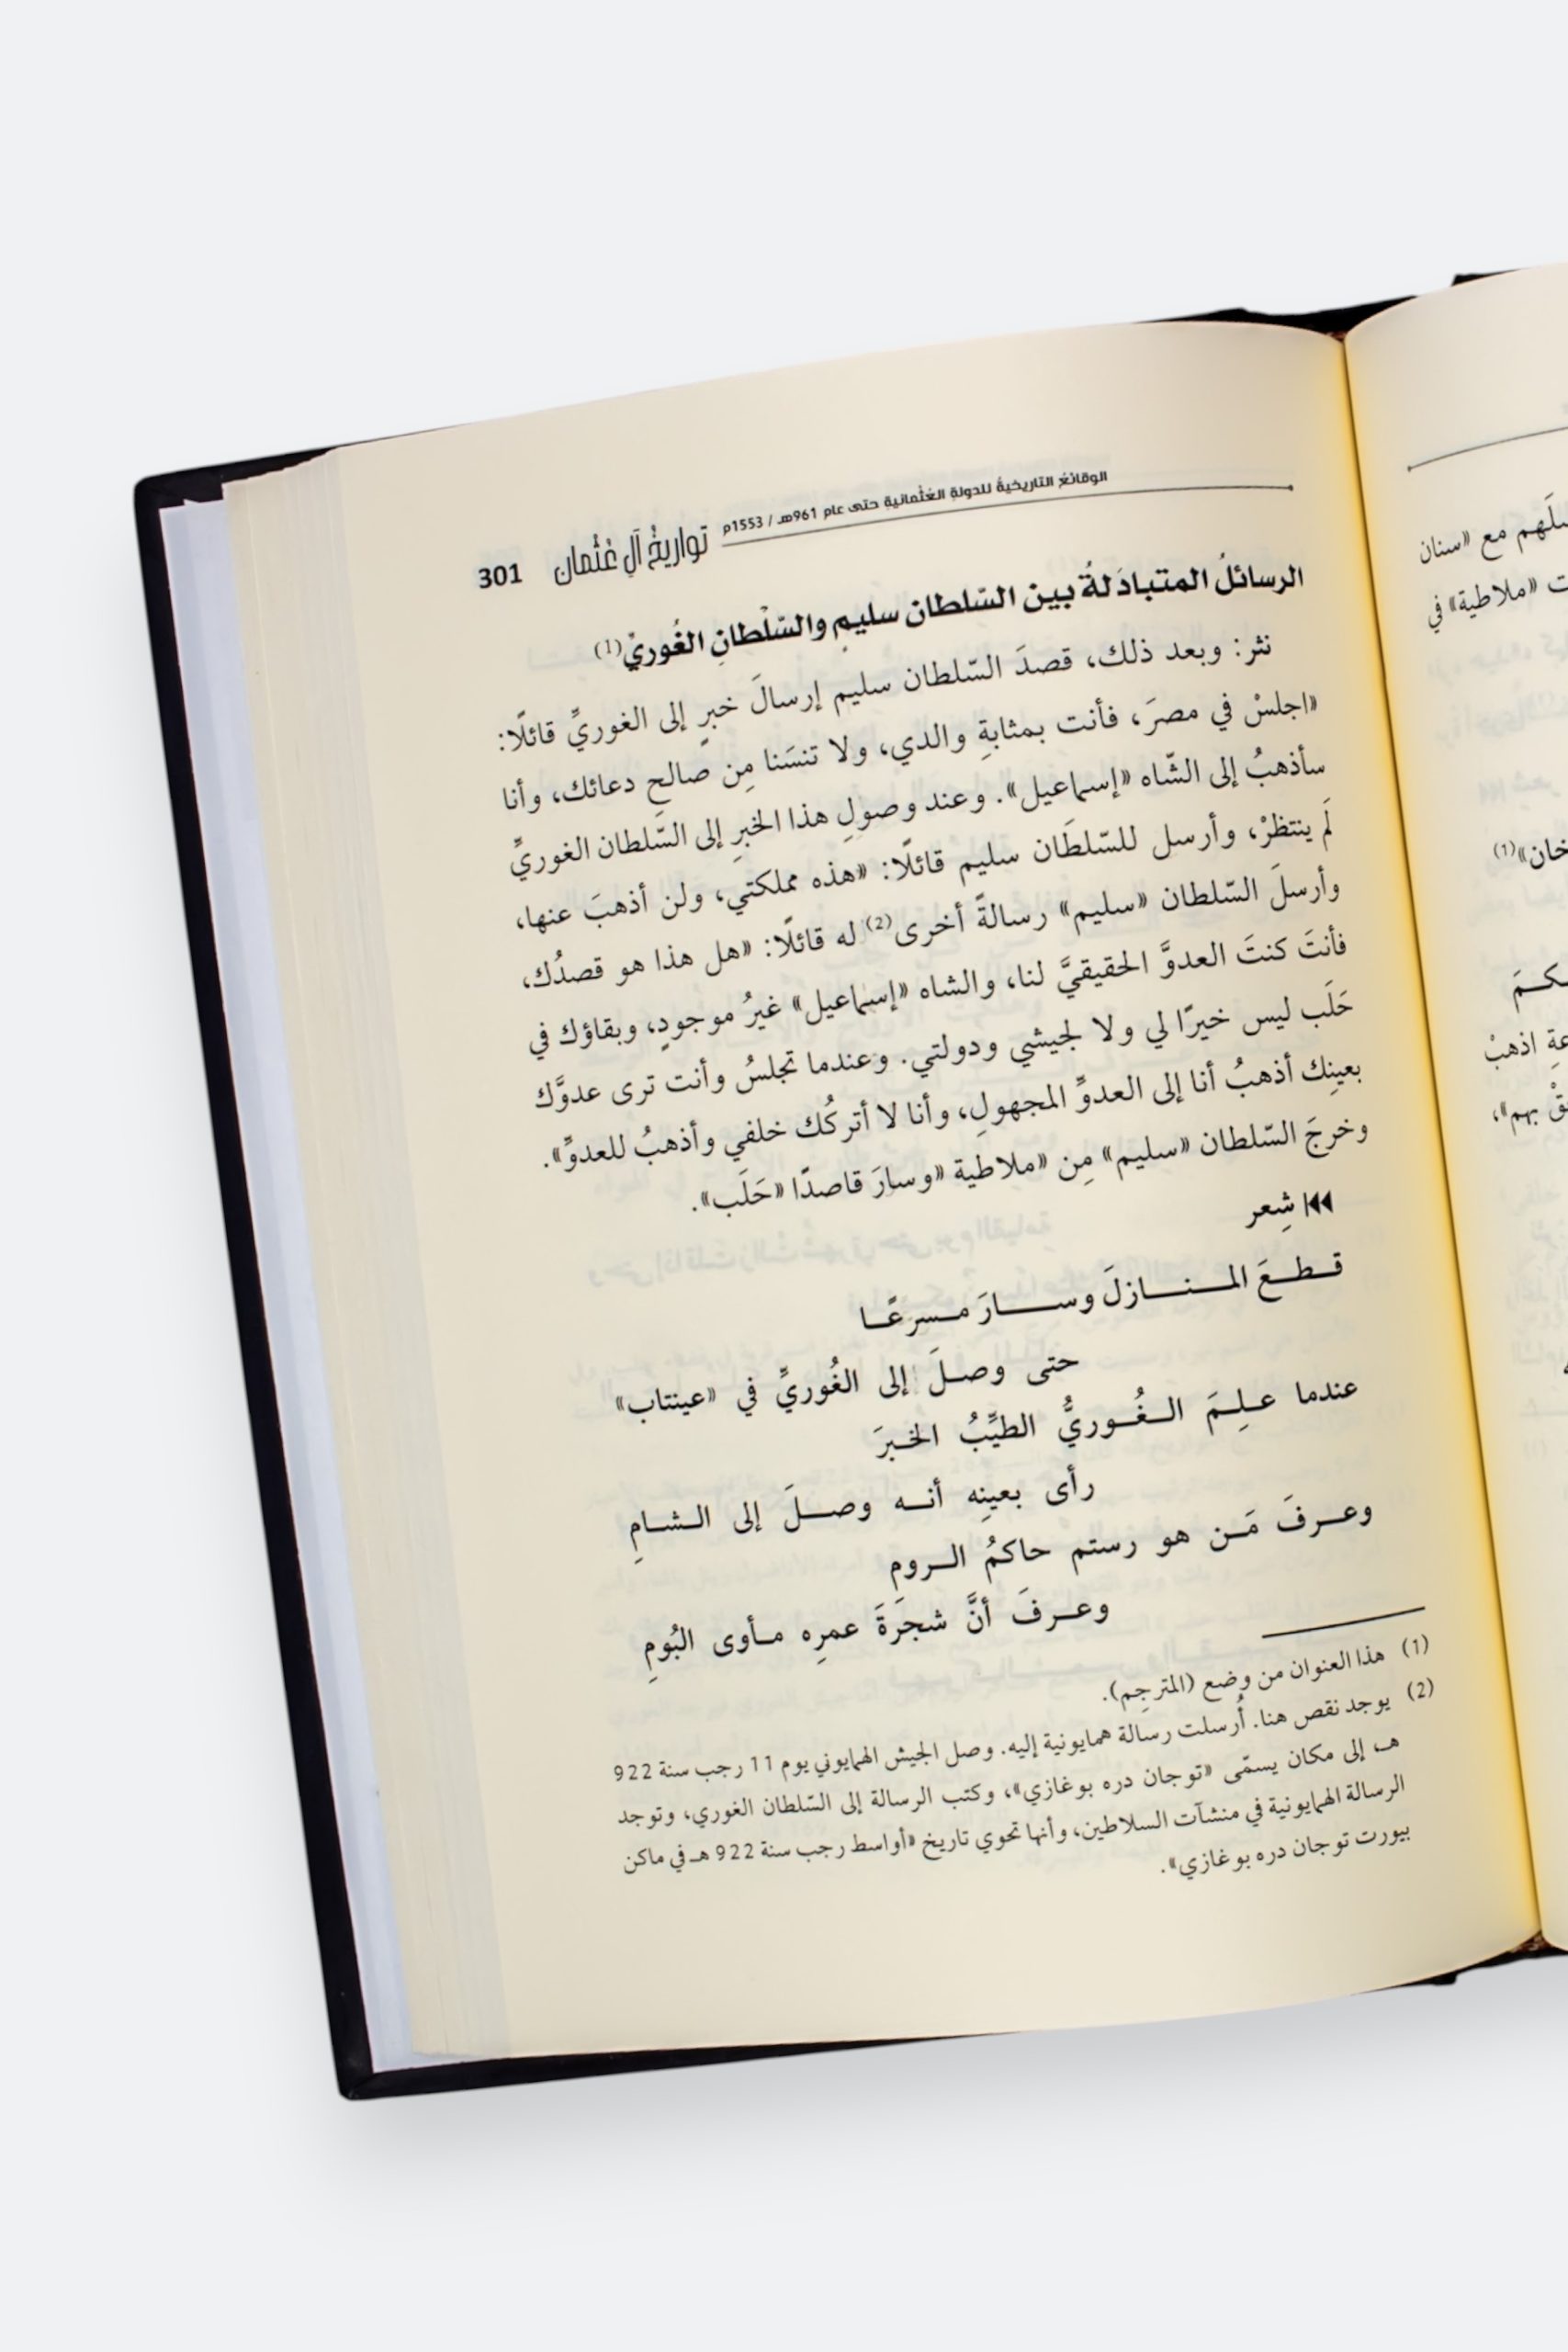 الوقائعُ التاريخيةُ للدولةِ العُثْمانيةِ حتى عام 961هـ / 1553م
تواريخُ آلِ عُثْمان
301
الرسائلُ المتبادَلةُ بين السّلطان سليمٍ والسّلْطانِ الغُوريّ(1)
نثر: وبعد ذلك، قصدَ السّلطان سليم إرسالَ خبرٍ إلى الغوريِّ قائلًا:
«اجلسْ في مصرَ، فأنت بمثابةِ والدي، ولا تنسَنا مِن صالحِ دعائك، وأنا
سأذهبُ إلى الشّاه «إسماعيل». وعند وصولِ هذا الخبرِ إلى السّلطان الغوريِّ
لَم ينتظرْ، وأرسل للسّلطَان سليم قائلًا: «هذه مملكتي، ولن أذهبَ عنها،
وأرسلَ السّلطان «سليم» رسالةً أخرى(2) له قائلًا: «هل هذا هو قصدُك،
فأنتَ كنتَ العدوَّ الحقيقيَّ لنا، والشاه «إسماعيل» غيرُ موجودٍ، وبقاؤك في
حَلَب ليس خيرًا لي ولا لجيشي ودولتي. وعندما تجلسُ وأنت ترى عدوَّك
بعينِك أذهبُ أنا إلى العدوِّ المجهولِ، وأنا لا أتركُك خلفي وأذهبُ للعدوِّ».
وخرجَ السّلطان «سليم» مِن «ملاطية «وسارَ قاصدًا «حَلَب».
شِعر
قـطـعَ المـنـازلَ وسـارَ مـسرعًـا
حتى وصـلَ إلى الغُوريِّ في «عينتاب»
عندما عـلِـمَ الـغُـوريُّ الطيِّبُ الخـبرَ
رأى بعينِه أنـه وصـلَ إلى الـشـامِ
وعـرفَ مَـن هو رستم حاكمُ الـروم
وعـرفَ أنَّ شجَرَةَ عمرِه مـأوى البُومِ
(1) هذا العنوان من وضع (المترجِم).
(2) يوجد نقص هنا. أُرسلت رسالة همايونية إليه. وصل الجيش الهمايوني يوم 11 رجب سنة 922
هـ، إلى مكان يسمّى «توجان دره بوغازي»، وكتب الرسالة إلى السّلطان الغوري، وتوجد
الرسالة الهمايونية في منشآت السلاطين، وأنها تحوي تاريخ «أواسط رجب سنة 922 هـ في ماكن
بيورت توجان دره بوغازي».
مع «سنان
«ملاطية» في
خان»(1)
اذهبْ
بهم»،